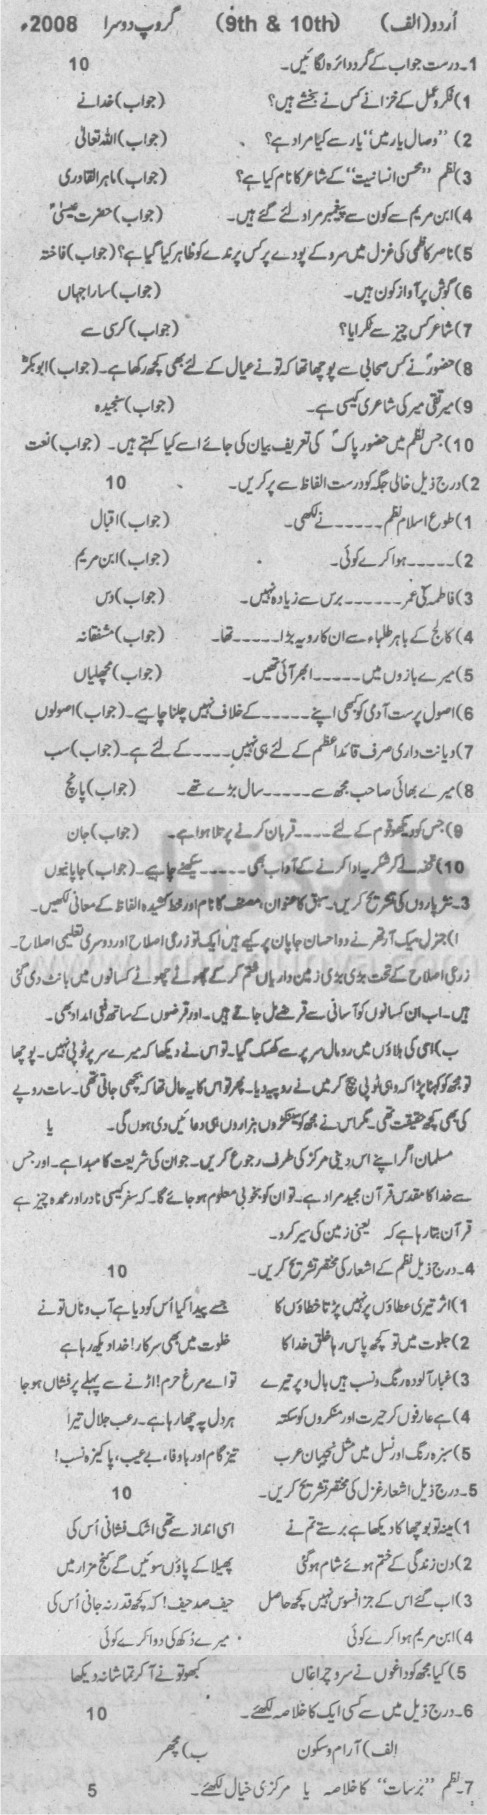 اُردو (الف) (9th & 10th) گروپ دوسرا 2008ء
1۔ درست جواب کے گرد دائرہ لگائیں۔ 10
1) فکر و عمل کے خزانے کس نے بخشے ہیں؟ (جواب) خدانے
2) ’’وصال یار میں‘‘ یار سے کیا مراد ہے؟ (جواب) اللہ تعالیٰ
3) نظم ’’محسن انسانیت‘‘ کے شاعر کا نام کیا ہے؟ (جواب) ماہر القادری
4) ابن مریم سے کون سے پیغمبر مراد لئے گئے ہیں۔ (جواب) حضرت عیسیٰؑ
5) ناصر کاظمی کی غزل میں سرو کے پودے پر کس پرندے کو ظاہر کیا گیا ہے؟ (جواب) فاختہ
6) گوش بر آواز کون ہیں۔ (جواب) سارا جہاں
7) شاعر کس چیز سے ٹکرایا؟ (جواب) کرسی سے
8) حضورؐ نے کس صحابی سے پوچھا تھا کہ تو نے عیال کے لئے بھی کچھ رکھا ہے۔ (جواب) ابوبکرؓ
9) میر تقی میر کی شاعری کیسی ہے۔ (جواب) سنجیدہ
10) جس نظم میں حضور پاکؐ کی تعریف بیان کی جائے اسے کیا کہتے ہیں۔ (جواب) نعت
2) درج ذیل خالی جگہ کو درست الفاظ سے پر کریں۔ 10
1) طلوع اسلام نظم ۔۔۔۔۔ نے لکھی۔ (جواب) اقبال
2) ۔۔۔۔۔ ہوا کرے کوئی۔ (جواب) ابن مریم
3) فاطمہ کی عمر ۔۔۔۔۔۔ برس سے زیادہ نہیں۔ (جواب) دس
4) کالج کے باہر طلباء سے ان کا رویہ بڑا ۔۔۔۔۔ تھا۔ (جواب) مشفقانہ
5) میرے بازوں میں ۔۔۔۔۔ ابھر آئی تھیں۔ (جواب) مچھلیاں
6) اصول پرست آدمی کو کبھی اپنے ۔۔۔۔۔ کے خلاف نہیں چلنا چاہیے۔ (جواب) اصولوں
7) دیانت داری صرف قائد اعظم کے لئے ہی نہیں ۔۔۔۔ کے لئے ہے۔ (جواب) سب
8) میرے بھائی صاحب مجھ سے ۔۔۔۔۔ سال بڑے تھے۔ (جواب) پانچ
9) جس کو دیکھو قوم کے لئے ۔۔۔۔ قربان کرنے پر تلا ہوا ہے۔ (جواب) جان
10) تحفہ لے کر شکریہ ادا کرنے کے آداب بھی ۔۔۔۔۔ سیکھنے چاہیے۔ (جواب) جاپانیوں
3۔ نثر پاروں کی تشریح کریں۔ سبق کا عنوان، مصنف کا نام اور خط کشیدہ الفاظ کے معانی لکھیں۔
ا) جنرل میک آرتھر نے دو احسان جاپان پر کیے ہیں ایک تو زرعی اصلاح اور دوسری تعلیمی اصلاح۔
زرعی اصلاح کے تحت بڑی بڑی زمین داریاں ختم کر کے چھوٹے چھوٹے کسانوں میں بانٹ دی گئی
ہیں۔ اب ان کسانوں کو آسانی سے قرضے مل جاتے ہیں۔ اور قرضوں کے ساتھ فنی امداد بھی۔
ب) اسی کی بلاؤں میں رومال سر پر سے کھسک گیا۔ تو اس نے دیکھا کہ میرے سر پر ٹوپی نہیں۔ پوچھا
تو مجھ کو کہنا پڑا کہ وہی ٹوپی بیچ کر میں نے روپیہ دیا۔ پھر تو اس کا یہ حال تھا کہ بچھی جاتی تھی۔ سات روپے
کی بھی کچھ حقیقت تھی۔ مگر اس نے مجھ کو سینکڑوں ہزاروں ہی دعائیں دی ہوں گی۔ یا
مسلمان اگر اپنے اس دینی مرکز کی طرف رجوع کریں۔ جو ان کی شریعت کا مبدا ہے۔ اور جس
سے خدا کا مقدس قرآن مجید مراد ہے۔ تو ان کو بخوبی معلوم ہو جائے گا۔ کہ سفر کیسی نادر اور عمدہ چیز ہے
قرآن بتا رہا ہے کہ یعنی زمین کی سیر کرو۔
4۔ درج ذیل نظم کے اشعار کی مختصر تشریح کریں۔ 10
1) اثر تیری عطاؤں پر نہیں پڑتا خطاؤں کا جسے پیدا کیا اُس کو دیا ہے آب و ناں تو نے
2) جلوت میں تو کچھ پاس رہا خلق خدا کا خلوت میں بھی سرکار! خدا دیکھ رہا ہے
3) غبار آلودہ رنگ و نسب ہیں بال و پر تیرے تو اے مرغ حرم! اڑنے سے پہلے پر فشاں ہو جا
4) ہے عارفوں کو حیرت اور منکروں کو سکتہ ہر دل پہ چھا رہا ہے۔ رعب جلال تیرا
5) سبزہ رنگ اور نسل میں مثل نجیبان عرب تیز گام اور باوفا، بے عیب، پاکیزہ نسب!
5۔ درج ذیل اشعار غزل کی مختصر تشریح کریں۔ 10
1) مینہ تو بوچھار کا دیکھا ہے برستے تم نے اسی انداز سے تھی اشک فشانی اُس کی
2) دن زندگی کے ختم ہوئے شام ہو گئی پھیلا کے پاؤں سوئیں گے کنج مزار میں
3) اب گئے اس کے جز افسوس نہیں کچھ حاصل حیف صد حیف! کہ کچھ قدر نہ جانی اُس کی
4) ابن مریم ہوا کرے کوئی میرے دُکھ کی دوا کرے کوئی
5) کیا مجھ کو داغوں نے سرو چراغاں کبھو تو نے آ کر تماشا نہ دیکھا
6۔ درج ذیل میں سے کسی ایک کا خلاصہ لکھئے۔ 10
الف) آرام و سکون ب) مچھر
7۔ نظم ’’برسات‘‘ کا خلاصہ یا مرکزی خیال لکھئے۔ 5